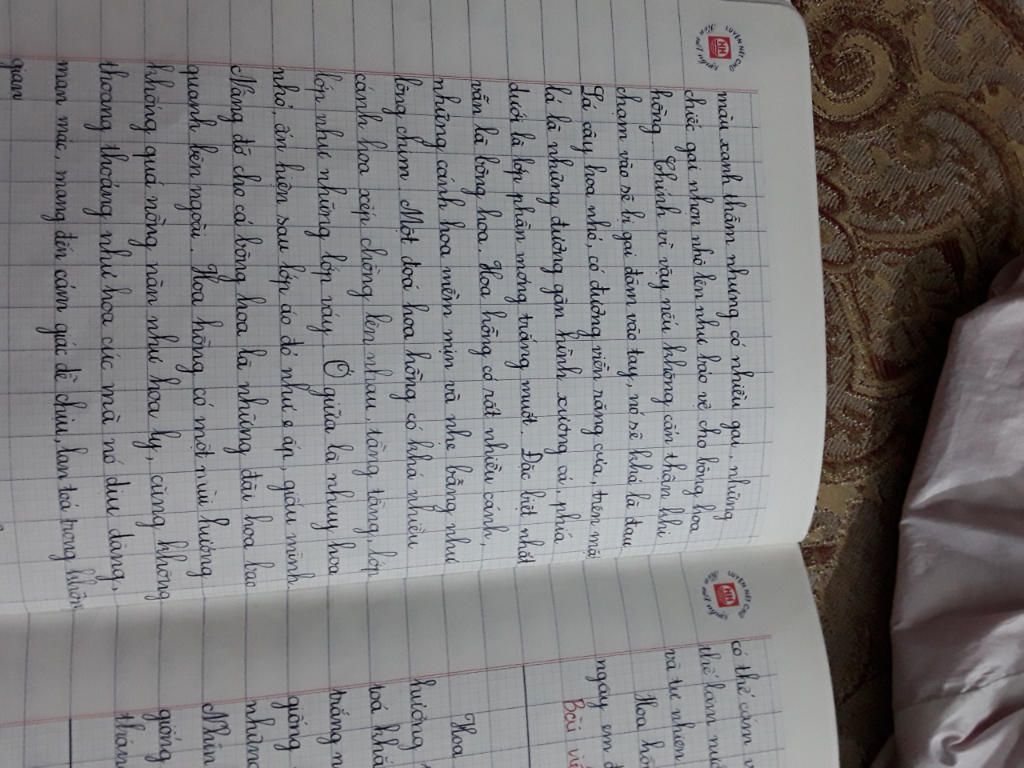 LUYỆN NÉT CHỮ
màu xanh thẫm nhưng có nhiều gai, những
chiếc gai nhọn nhô lên như bảo vệ cho bông hoa
hồng. Chính vì vậy nếu không cẩn thận khi
chạm vào sẽ bị gai đâm vào tay, nó sẽ khá là đau
Lá cây hoa nhỏ, có đường viền răng cưa, trên mỗi
lá là những đường gân hình xương cá, phía
dưới là lớp phấn mỏng trắng muốt. Đặc biệt nhất
vẫn là bông hoa. Hoa hồng có rất nhiều cánh,
những cánh hoa mềm mịn và nhẹ bẫng như
lông chim. Một đoá hoa hồng có khá nhiều
cánh hoa xếp chồng lên nhau, tầng tầng, lớp
lớp như những lớp váy. Ở giữa là nhuỵ hoa
nhỏ, ẩn hiện sau lớp áo đỏ như e ấp, giấu mình.
Nâng đỡ cho cả bông hoa là những đài hoa bao
quanh bên ngoài. Hoa hồng có một mùi hương
không quá nồng nàn như hoa ly, cũng không
thoang thoảng như hoa cúc mà nó dịu dàng,
man mác, mang đến cảm giác dễ chịu, lan toả trong khôn
gian
LUYỆN NÉT CHỮ
có thể cảm
thế làm
và tự nhiên
Hoa hồ
ngày em đ
Bài vi
Hoa
hương
toả khắ
trắng
giống
những
Nhìn
giống
thâm